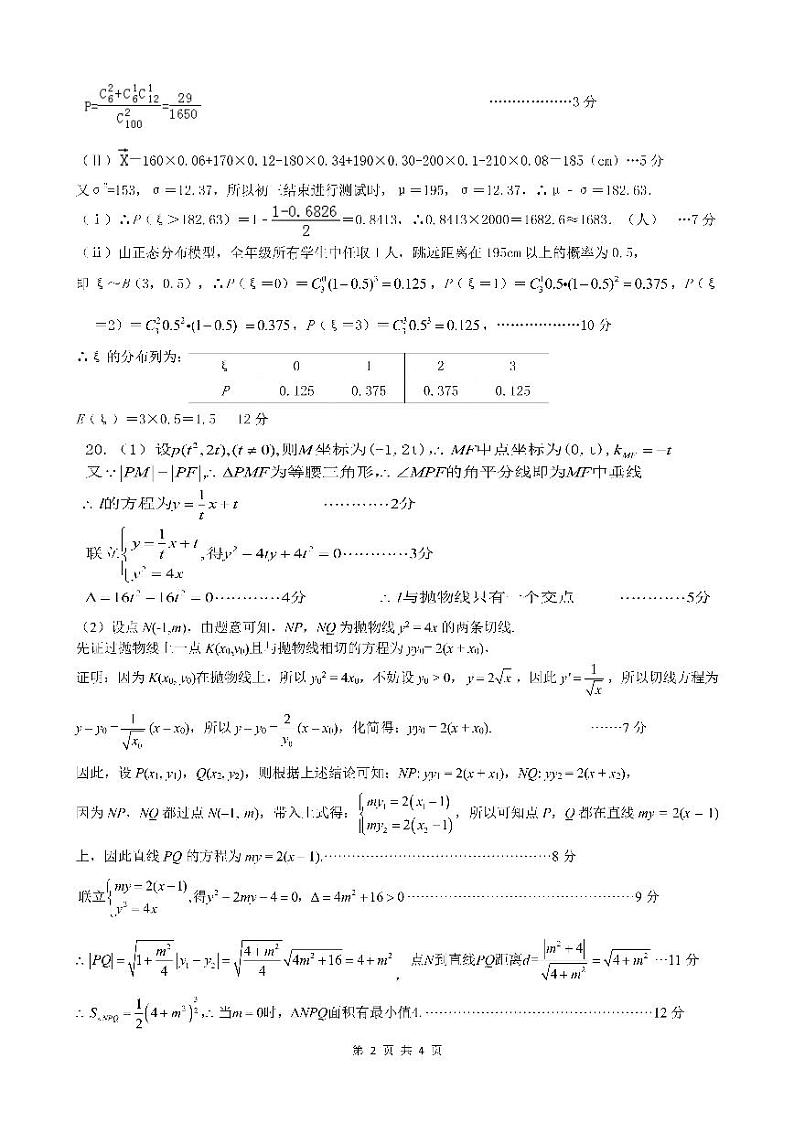 P=\frac{C_6^2+C_6^1C_{12}^1}{C_{100}^2}=\frac{29}{1650} ………………3分
(Ⅱ) X=160×0.06+170×0.12-180×0.34+190×0.30-200×0.1-210×0.08=185 (cm) …5分
又σ²=153, σ=12.37, 所以初三结束进行测试时, μ=195, σ=12.37. ∴μ-σ=182.63.
(ⅰ) ∴P(ξ>182.63)=1-\frac{1-0.6826}{2}=0.8413, ∴0.8413×2000=1682.6≈1683. (人) …7分
(ⅱ) 由正态分布模型, 全年级所有学生中任取1人, 跳远距离在195cm以上的概率为0.5,
即ξ~B(3, 0.5), ∴P(ξ=0)=C_3^0(1-0.5)^3=0.125, P(ξ=1)=C_3^1 0.5•(1-0.5)^2=0.375, P(ξ
=2)=C_3^2 0.5^2•(1-0.5)=0.375, P(ξ=3)=C_3^3 0.5^3=0.125, ………………10分
∴ξ的分布列为:
ξ 0 1 2 3
P 0.125 0.375 0.375 0.125
E(ξ)=3×0.5=1.5 12分
20. (1) 设p(t²,2t),(t≠0),则M坐标为(-1,2t),∴MF中点坐标为(0,t),k_{MF}=-t
又∵|PM|=|PF|,∴ΔPMF为等腰三角形,∴∠MPF的角平分线即为MF中垂线
∴l的方程为y=\frac{1}{t}x+t …………2分
联立{y=\frac{1}{t}x+t, y²=4x},得y²-4ty+4t²=0…………3分
Δ=16t²-16t²=0…………4分 ∴l与抛物线只有一个交点 …………5分
(2) 设点N(-1,m), 由题意可知, NP, NQ为抛物线y²=4x的两条切线.
先证过抛物线上一点K(x₀,y₀)且与抛物线相切的方程为yy₀=2(x+x₀),
证明: 因为K(x₀, y₀)在抛物线上, 所以y₀²=4x₀, 不妨设y₀>0, y=2√x, 因此y'=\frac{1}{√x}, 所以切线方程为
y-y₀=\frac{1}{√x₀}(x-x₀), 所以y-y₀=\frac{2}{y₀}(x-x₀), 化简得: yy₀=2(x+x₀). …….7分
因此, 设P(x₁, y₁), Q(x₂, y₂), 则根据上述结论可知: NP: yy₁=2(x+x₁), NQ: yy₂=2(x+x₂),
因为NP, NQ都过点N(-1, m), 带入上式得: {my₁=2(x₁-1), my₂=2(x₂-1)}, 所以可知点P, Q都在直线my=2(x-1)
上, 因此直线PQ的方程为my=2(x-1).…………………………………………8分
联立{my=2(x-1), y²=4x},得y²-2my-4=0, Δ=4m²+16>0…………………………………………9分
∴|PQ|=\sqrt{1+\frac{m²}{4}}|y₁-y₂|=\sqrt{\frac{4+m²}{4}}\sqrt{4m²+16}=4+m², 点N到直线PQ距离d=\frac{|m²+4|}{\sqrt{4+m²}}=\sqrt{4+m²} …11分
∴S_{ΔNPQ}=\frac{1}{2}(4+m²)^{\frac{3}{2}},∴当m=0时, ΔNPQ面积有最小值4. …………………………………………12分
第 2 页 共 4 页